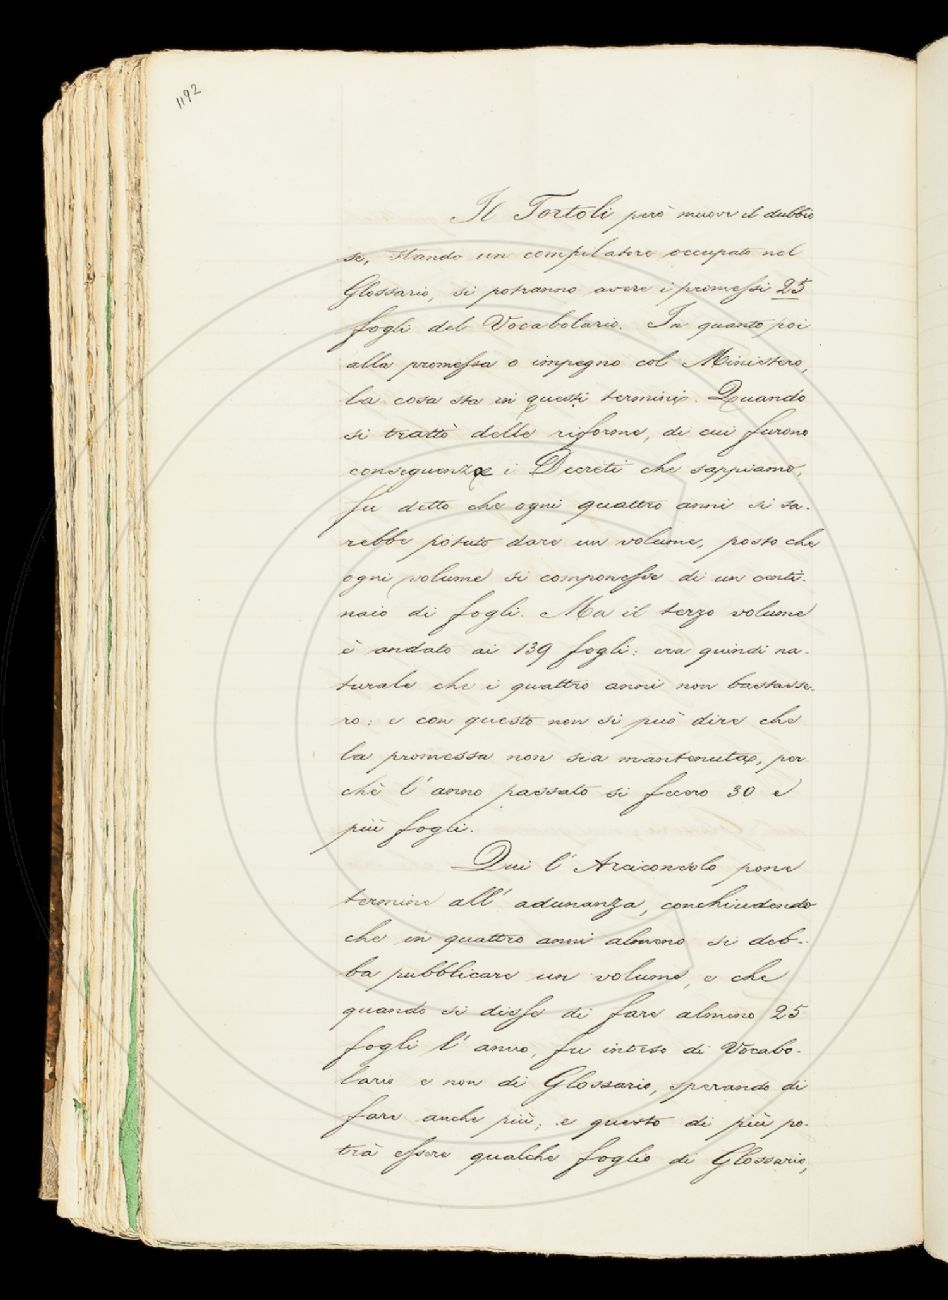 1192
Il Tortoli però muove il dubbio
se, stando un compilatore occupato nel
Glossario, si potranno avere i promessi 25
fogli del Vocabolario. In quanto poi
alla promessa o impegno col Ministero,
la cosa sta in questi termini. Quando
si trattò delle riforme, di cui furono
conseguenza i Decreti che sappiamo,
fu detto che ogni quattro anni si sa-
rebbe potuto dare un volume, posto che
ogni volume si componesse di un centi-
naio di fogli. Ma il terzo volume
è andato ai 139 fogli: era quindi na-
turale che i quattro anni non bastasse-
ro: e con questo non si può dire che
la promessa non sia mantenuta, per
chè l'anno passato si fecero 30 e
più fogli.
Qui l'Arciconsolo pone
termine all'adunanza, conchiudendo
che in quattro anni almeno si deb-
ba pubblicare un volume, e che
quando si disse di fare almeno 25
fogli l'anno, fu inteso di Vocabo-
lario e non di Glossario, sperando di
fare anche più; e questo di più po-
trà essere qualche foglio di Glossario,